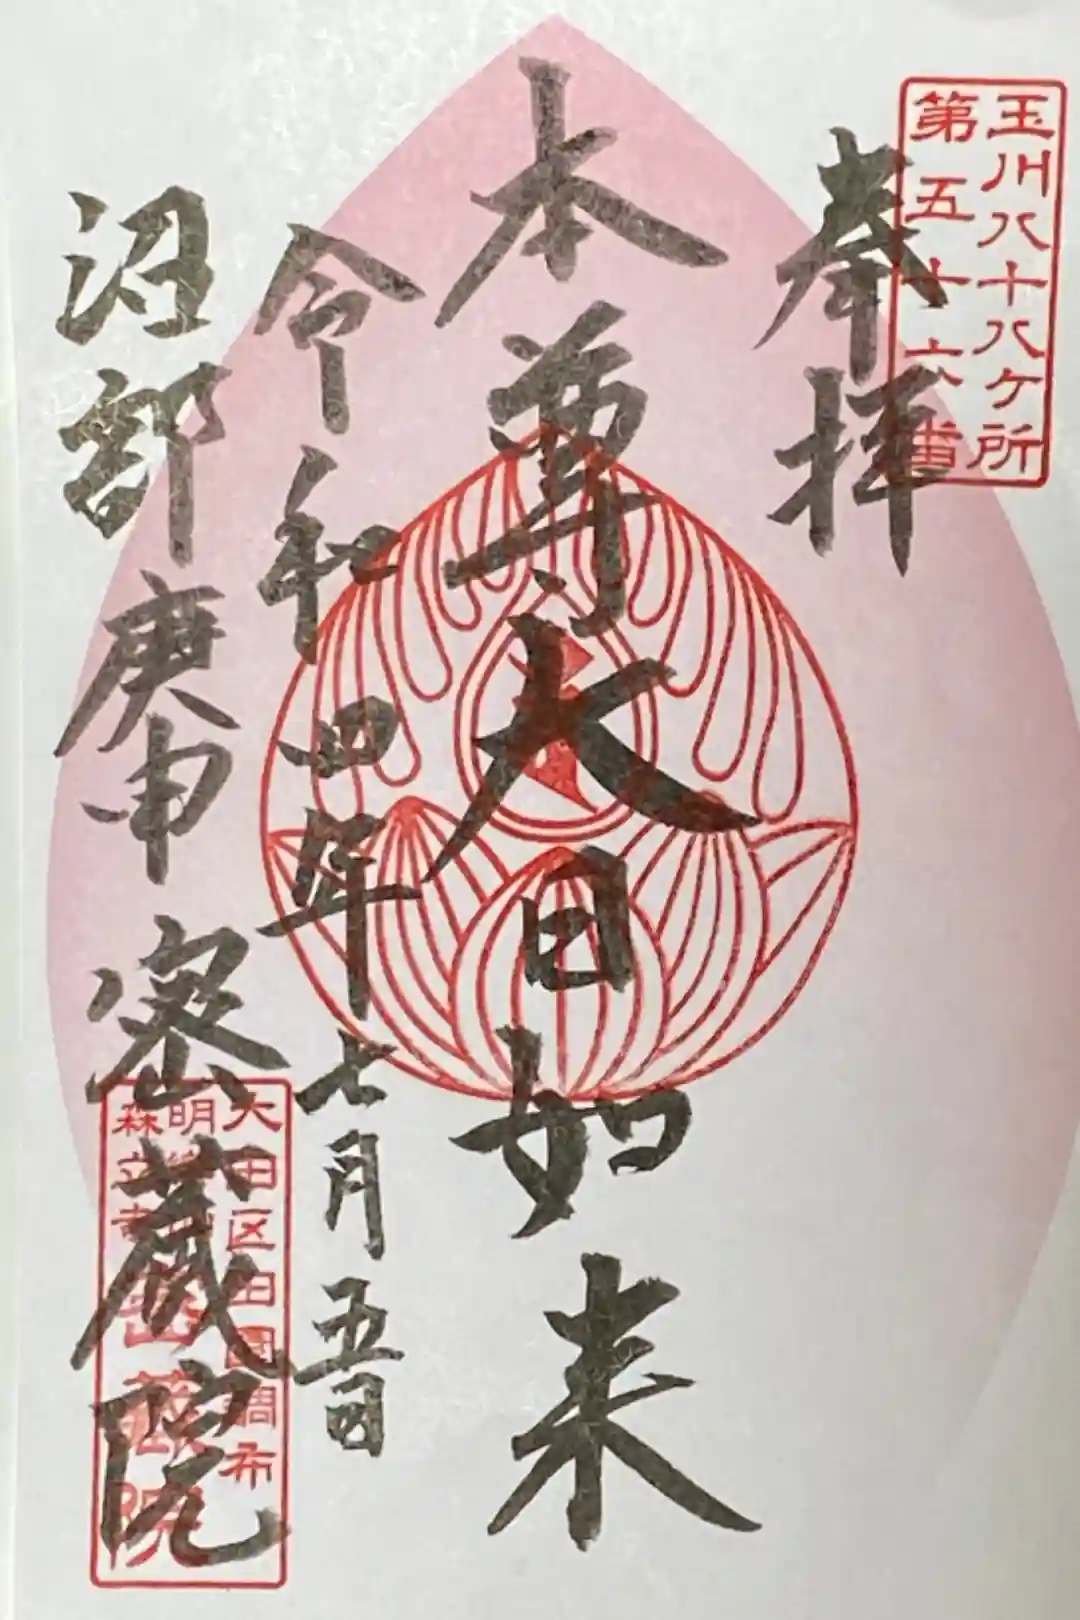 玉川八十八ケ所
第五十六番
奉拝
本尊大日如来
令和四年七月五日
沼部庚申密蔵院
大田区田園調布
明
森立寺
密蔵院